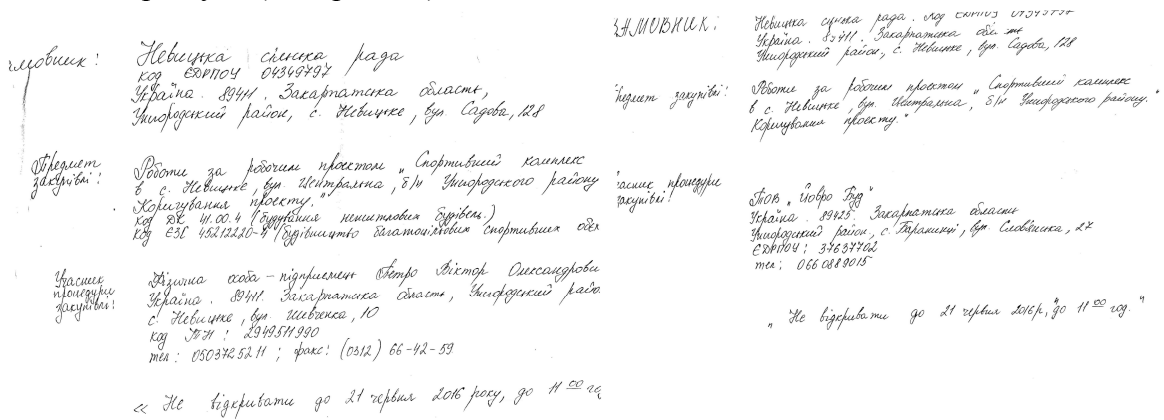 Невицька сільська рада
код ЄДРПОУ 04349797
Україна. 89411. Закарпатська область,
Ужгородський район, с. Невицьке, вул. Садова, 128
Предмет
закупівлі:
Роботи за робочим проектом „Спортивний комплекс
в с. Невицьке, вул. Центральна, б/н Ужгородського району
Коригування проекту."
код ДК 41.00.4 (будування нежитлових будівель.)
код ЄЗС 45212220-4 (будівництво багатоцільових спортивних
Учасник
процедури
закупівлі:
Фізична особа – підприємець Петро Віктор Олександрови
Україна. 89411. Закарпатська область, Ужгородський райо
с. Невицьке, вул. Шевченка, 10
код : 2949511990
тел: 0503725211; факс: (0312) 66-42-59
« Не відкривати до 21 червня 2016 року, до 11 00 го
ЗАМОВНИК:
Невицька сільська рада. Код
Україна. 89411. Закарпатська обл
Ужгородський район, с. Невицьке, вул. Садова, 128
закупівлі:
Роботи за робочим проектом „Спортивний комплекс
в с. Невицьке, вул. Центральна, б/н Ужгородського району.
Коригування проекту."
процедури
закупівлі:
ТОВ "Йовро Буд"
Україна. 89425. Закарпатська область
Ужгородський район, с. Баранинці, вул. Слов'янська, 27
ЄДРПОУ: 37637702
тел: 0660889015
„Не відкривати до 21 червня 2016р, до 11 00 год."